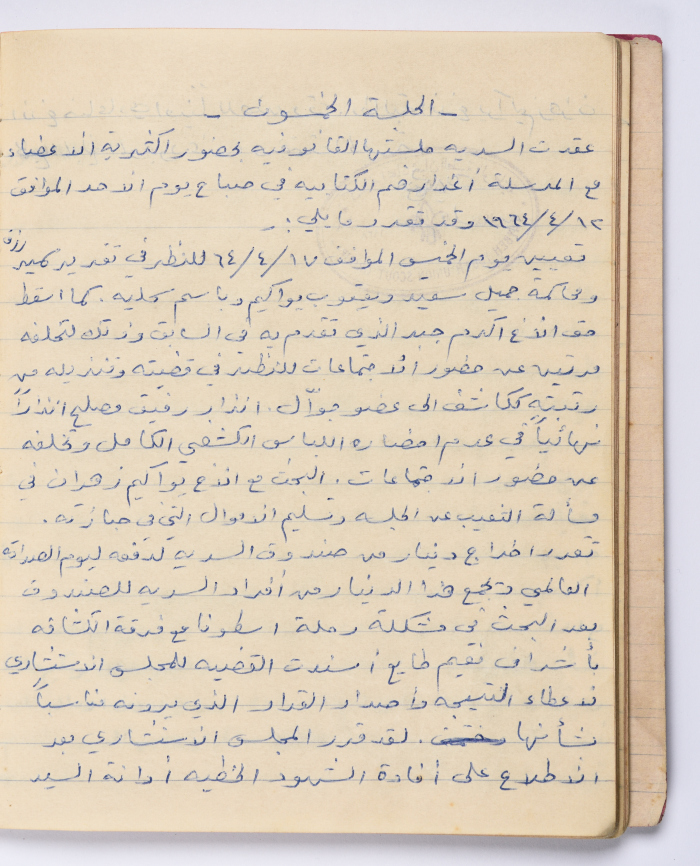 - الجلسة الخمسون -
عقدت السريه جلستها القانونيه بحضور اكثرية الاعضاء
مع المرسلة أغدار ضم الكتابيه في صباح يوم الاحد الموافق
١٢/٤/١٩٦٤ وقد تقرر ما يلي :-
تعيين يوم الخميس الموافق ١٧/٤/٦٤ للنظر في تقرير كميل رزق
ومحاكمة جميل سعيد ويعقوب يواكيم وباسم سحليه. كما اسقط
حق الاخ اكرم جبر الذي تقدم به في السابق وذلك لتخلفه
مرتين عن حضور الاجتماعات للنظر في قضيته وتنزيله من
رتبته ككاشف الى عضو جوّال. انذار رفيق مصلح انذاراً
نهائياً في عدم احضاره اللباس الكشفي الكامل وتخلفه
عن حضور الاجتماعات. البحث مع الاخ يواكيم زهران في
مسألة التغيب عن الجلسه وتسليم الاموال التي في حيازته.
تقرر اخراج دينار من صندوق السريه لدفعه ليوم الصداقه
العالمي وتجمع هذا الدينار من أفراد السريه للصندوق
بعد البحث في مشكلة رحلة اسطونا مع فرقة الكشافه
بأشراف نعيم طايع أسندت القضيه للمجلس الاستشاري
لاعطاء النتيجه وأصدار القرار الذي يرونه مناسباً
بشأنها. لقد قرر المجلس الاستشاري بعد
الاطلاع على أفادة الشهود الخطيه أدانة السيد